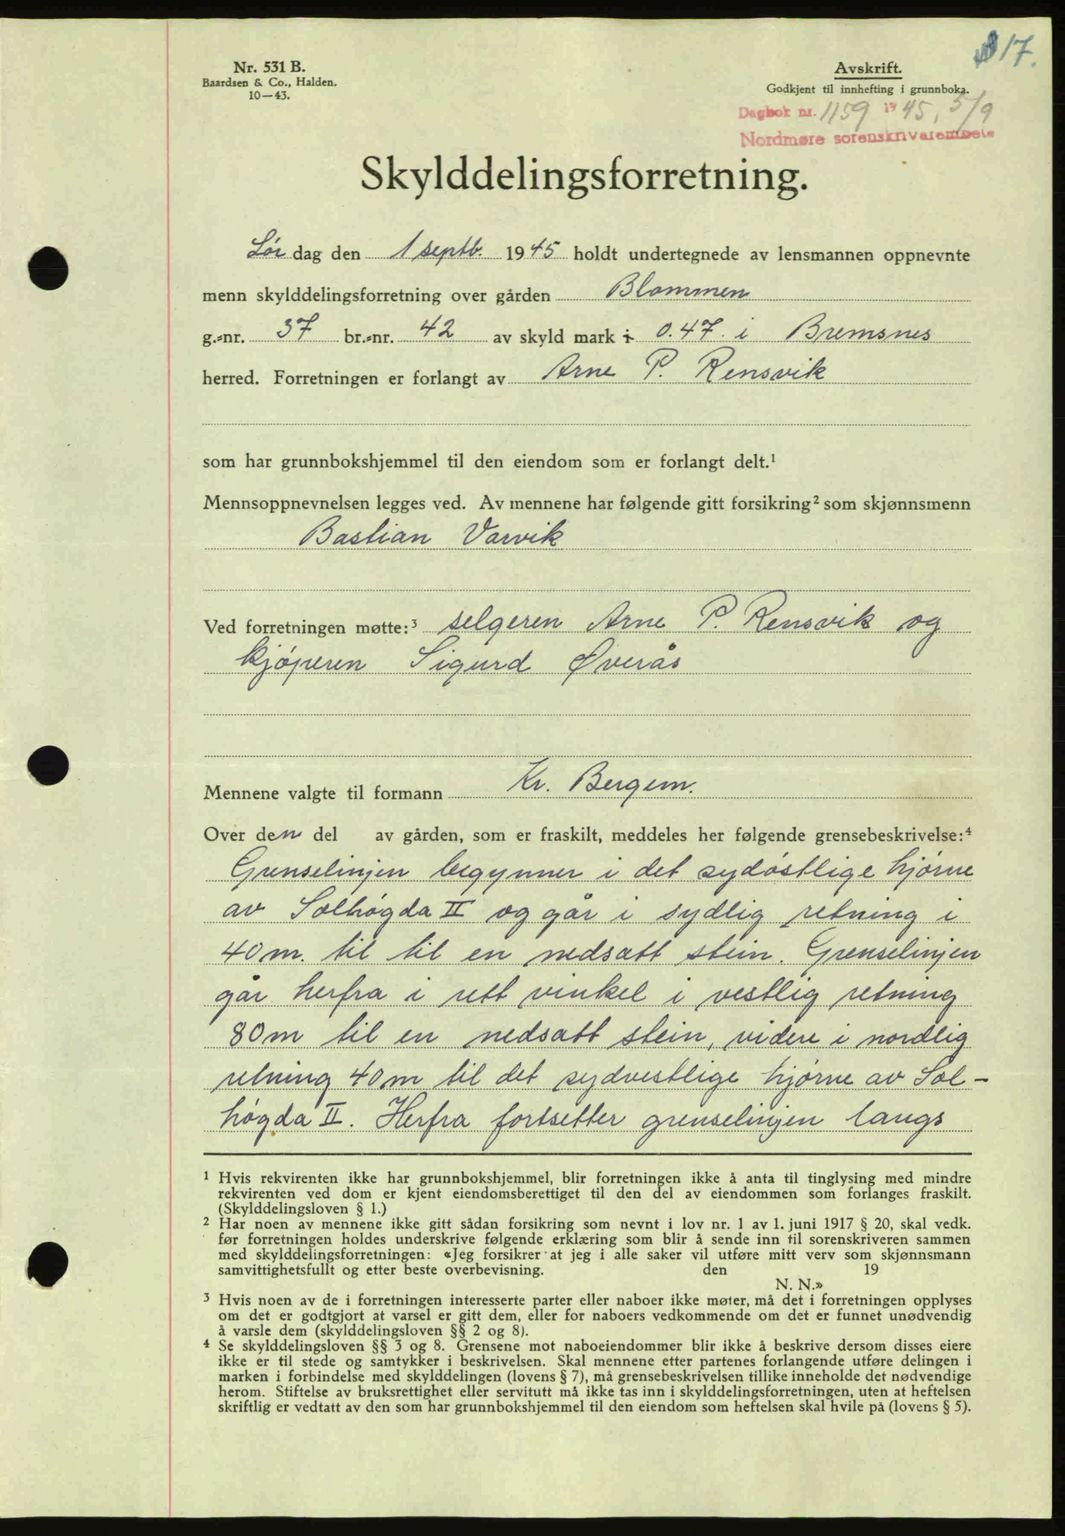 317.
Nr. 531 B.
Baardsen & Co., Halden.
10-43.
Avskrift.
Godkjent til innhefting i grunnboka.
Dagbok nr. 1159 1945, 5/9
Nordmøre sorenskriverembete
Skylddelingsforretning.
Lør dag den 1 septb. 1945 holdt undertegnede av lensmannen oppnevnte
menn skylddelingsforretning over gården Blommen
g.-nr. 37 br.-nr. 42 av skyld mark 0.47 i Bremsnes
herred. Forretningen er forlangt av Arne P. Rensvik
som har grunnbokshjemmel til den eiendom som er forlangt delt.¹
Mennsoppnevnelsen legges ved. Av mennene har følgende gitt forsikring² som skjønnsmenn
Bastian Varvik
Ved forretningen møtte:³ selgeren Arne P. Rensvik og
kjøperen Sigurd Øverås
Mennene valgte til formann Kr. Bergem.
Over den del av gården, som er fraskilt, meddeles her følgende grensebeskrivelse:⁴
Grenselinjen begynner i det sydøstlige hjørne
av Solhøgda II og går i sydlig retning i
40 m. til til en nedsatt stein. Grenselinjen
går herfra i rett vinkel i vestlig retning
80 m til en nedsatt stein, videre i nordlig
retning 40 m til det sydvestlige hjørne av Sol-
høgda II. Herfra fortsetter grenselinjen langs
¹ Hvis rekvirenten ikke har grunnbokshjemmel, blir forretningen ikke å anta til tinglysing med mindre
rekvirenten ved dom er kjent eiendomsberettiget til den del av eiendommen som forlanges fraskilt.
(Skylddelingsloven § 1.)
² Har noen av mennene ikke gitt sådan forsikring som nevnt i lov nr. 1 av 1. juni 1917 § 20, skal vedk.
før forretningen holdes underskrive følgende erklæring som blir å sende inn til sorenskriveren sammen
med skylddelingsforretningen: «Jeg forsikrer at jeg i alle saker vil utføre mitt verv som skjønnsmann
samvittighetsfullt og etter beste overbevisning. den 19
N. N.»
³ Hvis noen av de i forretningen interesserte parter eller naboer ikke møter, må det i forretningen opplyses
om det er godtgjort at varsel er gitt dem, eller for naboers vedkommende om det er funnet unødvendig
å varsle dem (skylddelingsloven §§ 2 og 8).
⁴ Se skylddelingsloven §§ 3 og 8. Grensene mot naboeiendommer blir ikke å beskrive dersom disses eiere
ikke er til stede og samtykker i beskrivelsen. Skal mennene etter partenes forlangende utføre delingen i
marken i forbindelse med skylddelingen (lovens § 7), må grensebeskrivelsen tillike inneholde det nødvendige
herom. Stiftelse av bruksrettighet eller servitutt må ikke tas inn i skylddelingsforretningen, uten at heftelsen
skriftlig er vedtatt av den som har grunnbokshjemmel til den eiendom som heftelsen skal hvile på (lovens § 5).